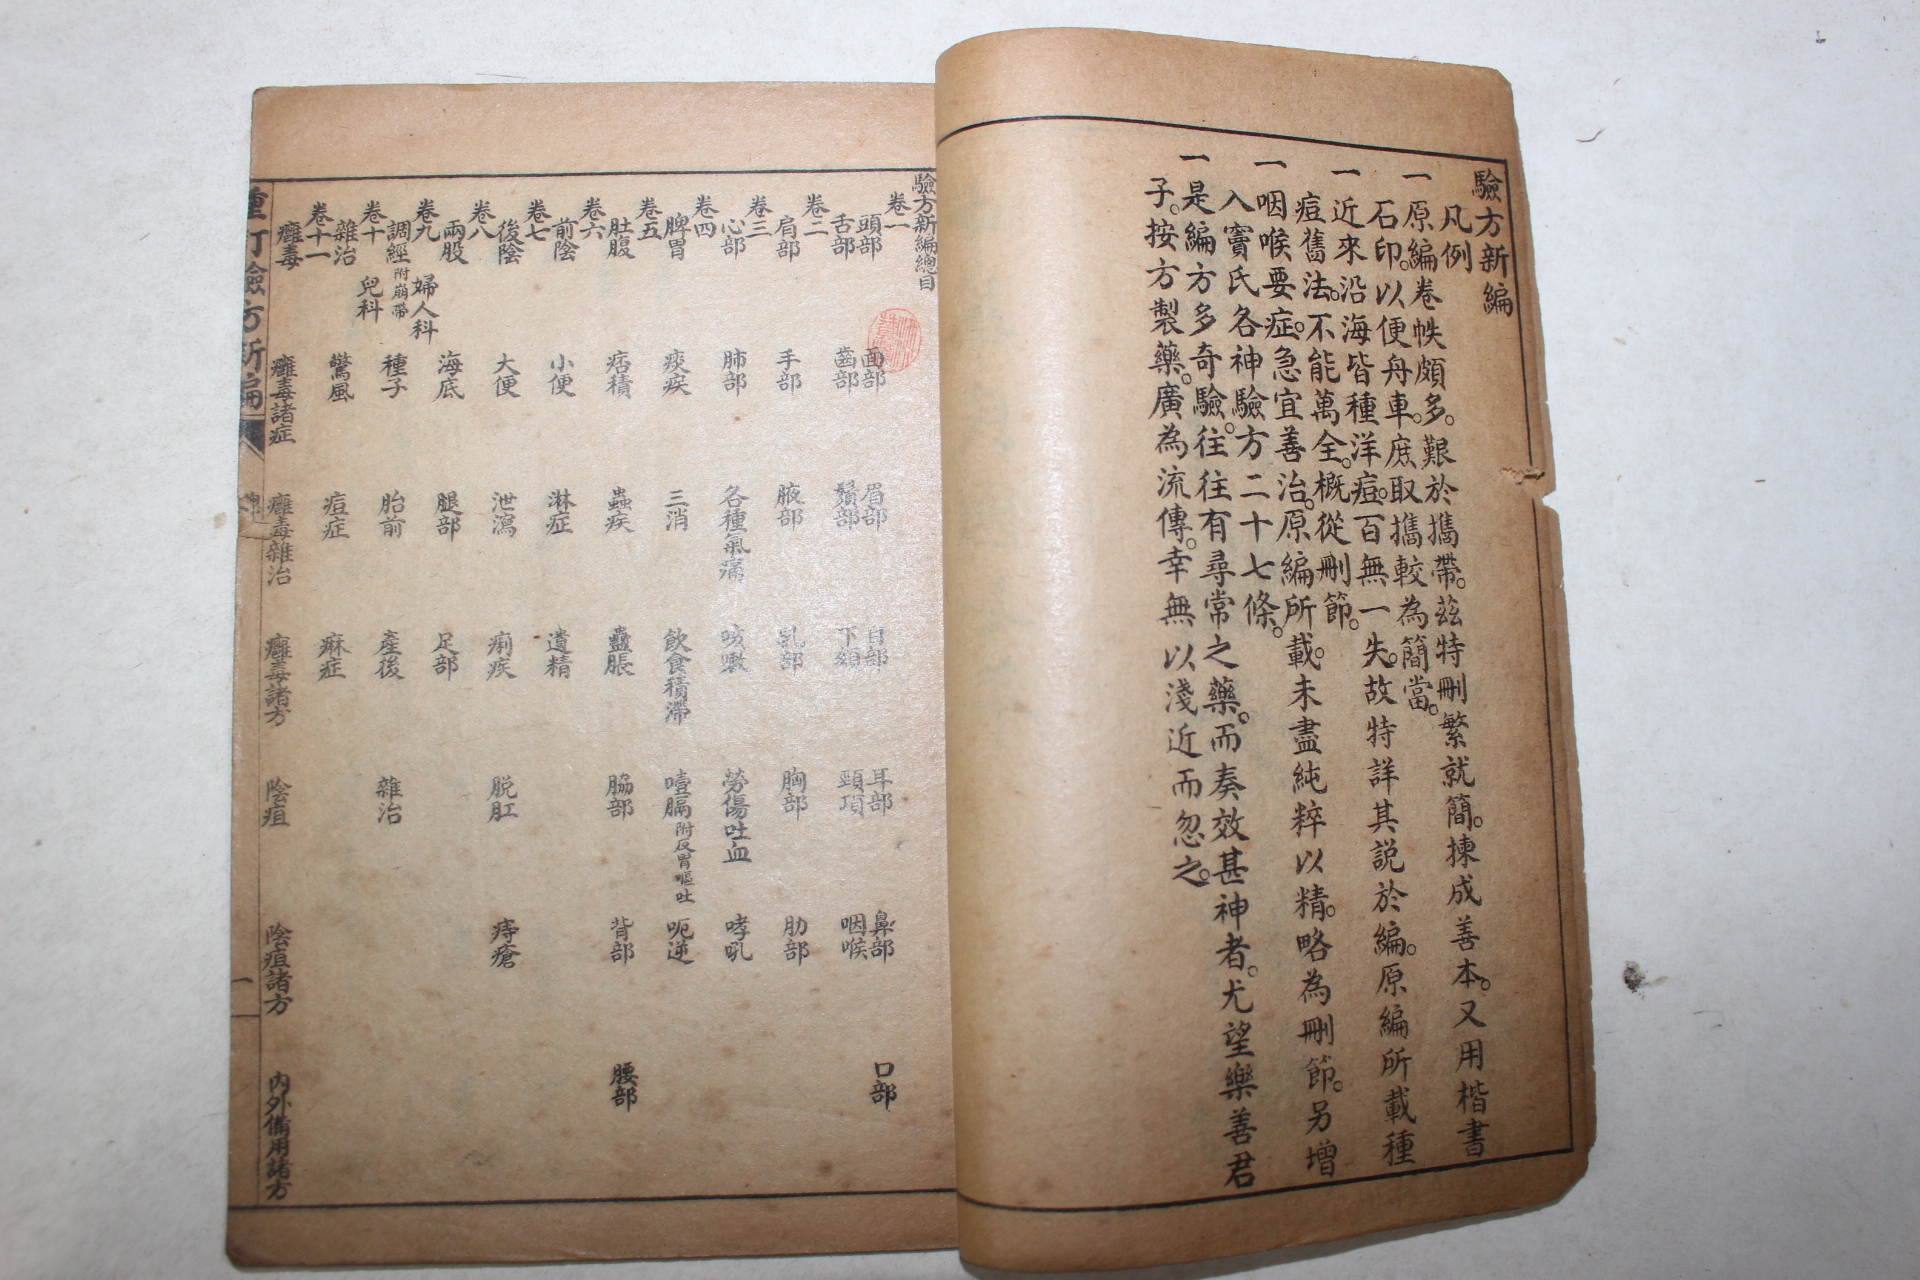 驗方新編
凡例
一原編卷帙頗多。艱於攜帶。茲特刪繁就簡。揀成善本。又用楷書
石印。以便舟車。庶取攜較為簡當。
一近來沿海皆種洋痘。百無一失。故特詳其說於編。原編所載種
痘舊法。不能萬全。概從刪節。
一咽喉要症。急宜善治。原編所載。未盡純粹以精。略為刪節。另增
入竇氏各神驗方二十七條。
一是編方多奇驗。往往有尋常之藥。而奏效甚神者。尤望樂善君
子。按方製藥。廣為流傳。幸無以淺近而忽之。
驗方新編總目
卷一
頭部 面部 眉部 目部 耳部 鼻部 口部
舌部 齒部 鬚部 下頦 頸項 咽喉
卷二
肩部 手部 腋部 乳部 胸部 肋部
卷三
心部 肺部 各種氣痛 咳嗽 勞傷吐血 哮吼
卷四
脾胃 痰疾 三消 飲食積滯 噎膈附反胃嘔吐 呃逆
卷五
肚腹 痞積 蟲疾 蠱脹 脇部 背部 腰部
卷六
前陰 小便 淋症 遺精
卷七
後陰 大便 泄瀉 痢疾 脫肛 痔瘡
卷八
兩股 海底 腿部 足部
卷九 婦人科
調經附崩帶 種子 胎前 產後 雜治
卷十 兒科
雜治 驚風 痘症 痳症
卷十一
癰毒 癰毒諸症 癰毒雜治 癰毒諸方 陰疽 陰疽諸方 內外備用諸方
重訂驗方新編
一